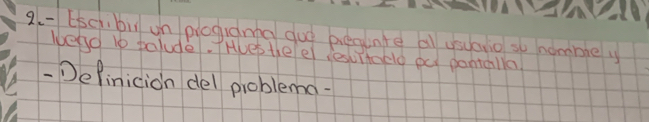 2.- Escribir un programa que pregunte al usuario su nombre y
luego lo salude. Muestre el resultado por pantalla.
-Definición del problema-